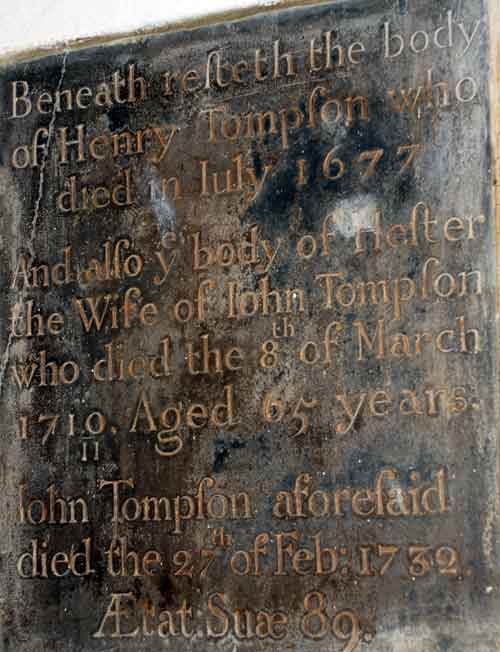 Beneath reſteth the body
of Henry Tompſon who
died in Iuly 1677
And alſo yᵉ body of Heſter
the Wife of Iohn Tompſon
who died the 8ᵗʰ of March
1710/11. Aged 65 years.
Iohn Tompſon aforeſaid
died the 27ᵗʰ of Feb: 1732.
Ætat: Suæ 89.